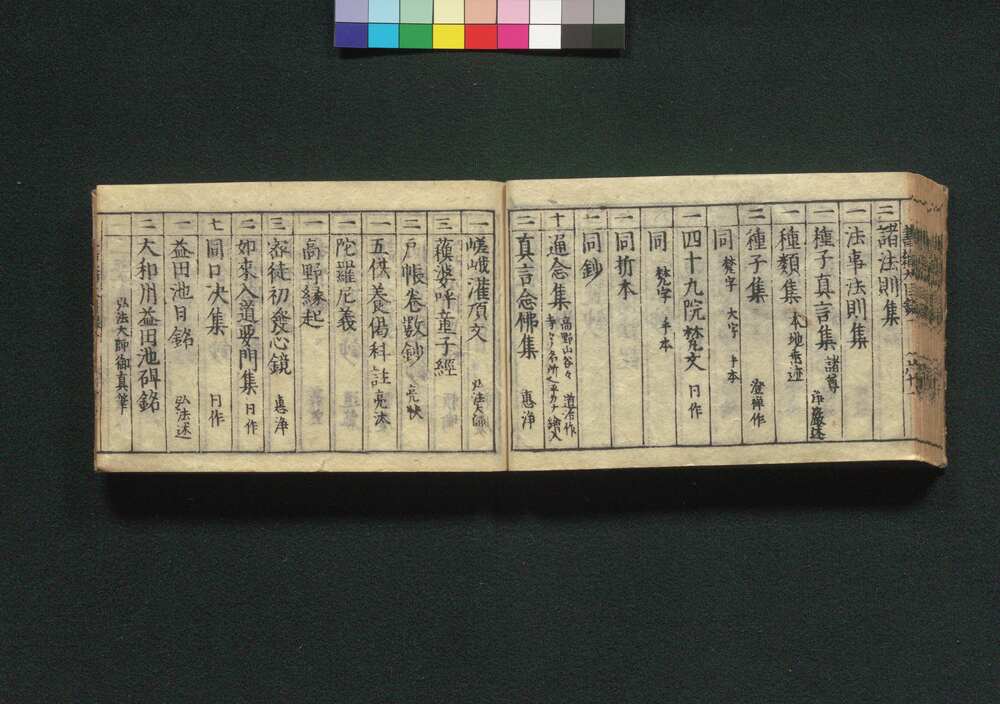 三 諸法則集
一 法事法則集
一 種子真言集 諸尊 印嚴述
一 種類集 本地垂迹
二 種子集 澄禅作
同 梵字 大字 半本
一 四十九院梵文 同作
同 梵字 半本
一 同折本
一 同鈔
十 通念集 高野山谷々 道有作 寺々名所之平カナ 繪入
二 真言念佛集 惠浄
一 嵯峨灌頂文 弘法大師
三 蘓婆呼童子經
三 戸帳卷數鈔 亮
一 五供養偈科註 亮汰
一 陀羅尼義
一 高野縁起
三 密徒初發心鏡 惠浄
二 如來入道要門集 同作
七 同口决集 同作
一 益田池目銘 弘法述
二 大和州益田池碑銘
弘法大師御真筆